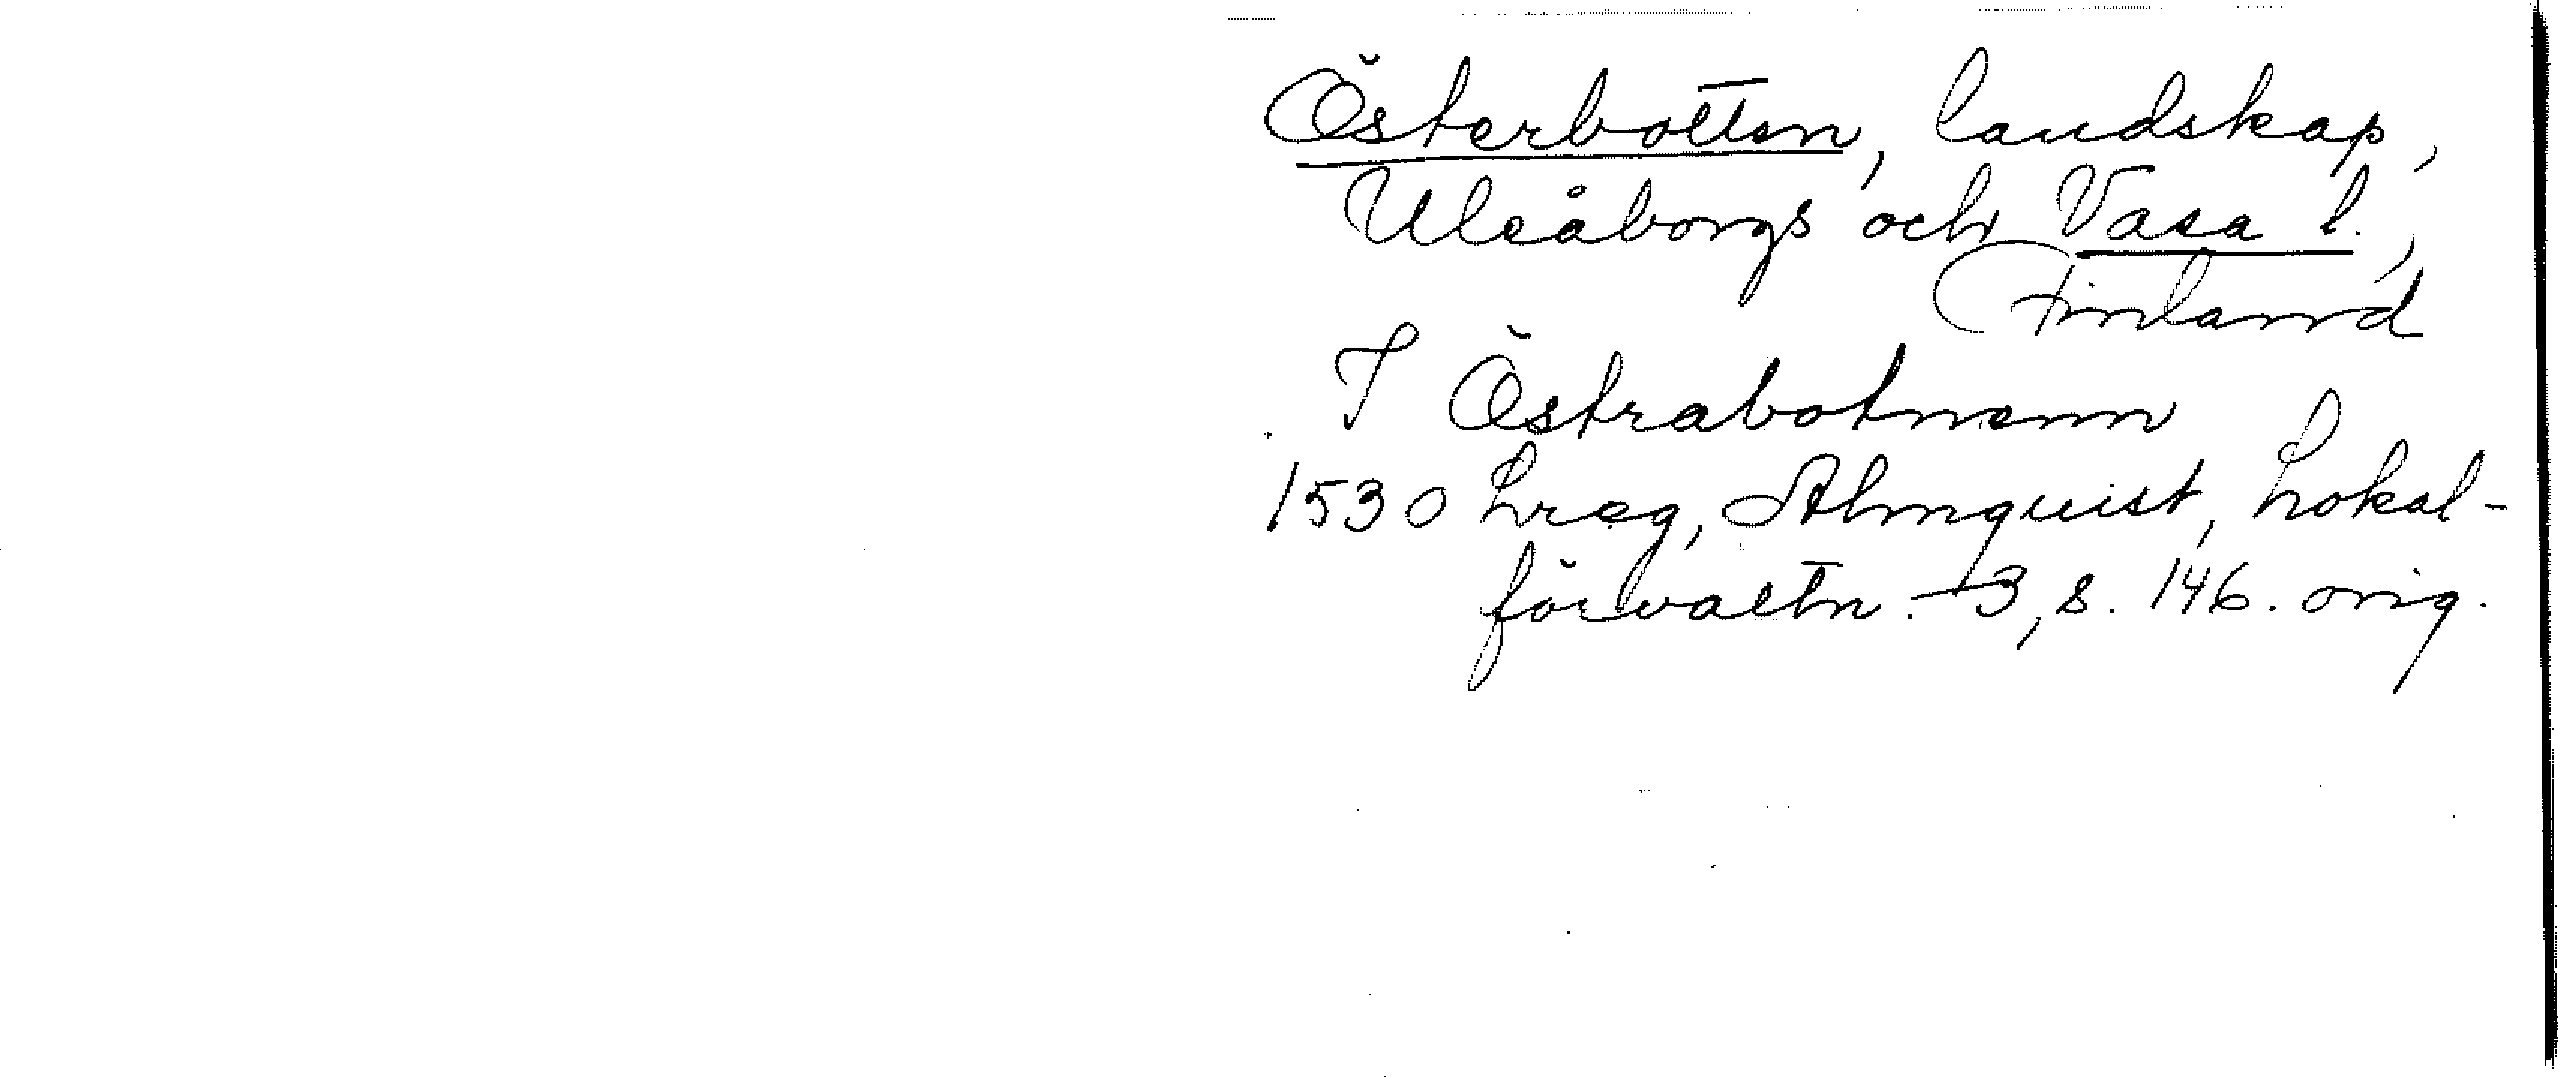 Österbotten, landskap,
Uleåborgs och Vasa l.,
Finland
I Östrabotnenn
1530 Lreg, Almquist, Lokal-
förvaltn. 3, s. 146. orig.